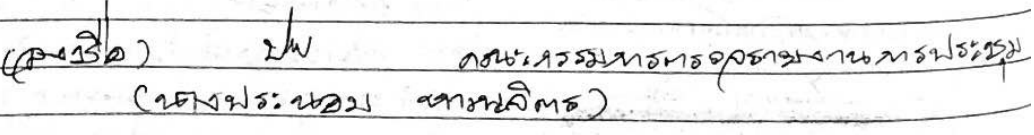 (ลงชื่อ) คณะกรรมการตรวจรายงานการประชุม
(นางประนอม